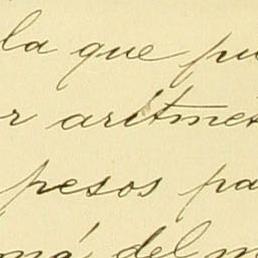 la que pu
r aritmét
pesos pa
má del m